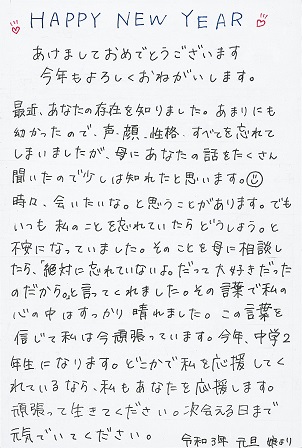 HAPPY NEW YEAR
あけましておめでとうございます
今年もよろしくおねがいします。
最近、あなたの存在を知りました。あまりにも
幼かったので、声、顔、性格、すべてを忘れて
しまいましたが、母にあなたの話をたくさん
聞いたので少しは知れたと思います。
時々、会いたいな。と思うことがあります。でも
いつも私のことを忘れていたらどうしよう。と
不安になっていました。そのことを母に相談し
たら、「絶対に忘れていないよ。だって大好きだった
のだから。」と言ってくれました。その言葉で私の
心の中はすっかり晴れました。この言葉を
信じて私は今頑張っています。今年、中学2
年生になります。どこかで私を応援してく
れているなら、私もあなたを応援します。
頑張って生きてください。次会える日まで
元気でいてください。
令和3年 元旦 娘より